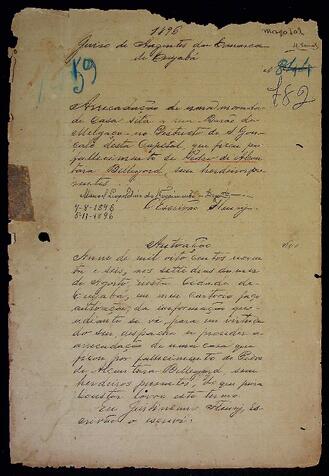 1896
Juiso de Auzentes da Comarca
de Cuyabá
59
782
Arrecadação de uma morada
de Casa sita a rua Barão de
Melgaço no Districto de S. Gon-
calo desta Capital, que ficou por
fallecimento de Pedro de Alcan-
tara Bellegard, sem herdeiros pre-
sentes
7-8-1896
5-11-1896
O Escrivão
Autoação
Anno de mil oito centos noven-
ta e seis, aos sette dias do mez
de Agosto, nesta Cidade de
Cuyabá, em meu Cartorio faço
autoação da informação que
adiante se ve, para em virtude
do seu despacho se proceder a
arrecadação de uma casa que
ficou por fallecimento de Pedro
de Alcantara Bellegard, sem
herdeiros presentes, do que para
Constar lavro este termo.
Eu, Es-
crivão o escrevi.